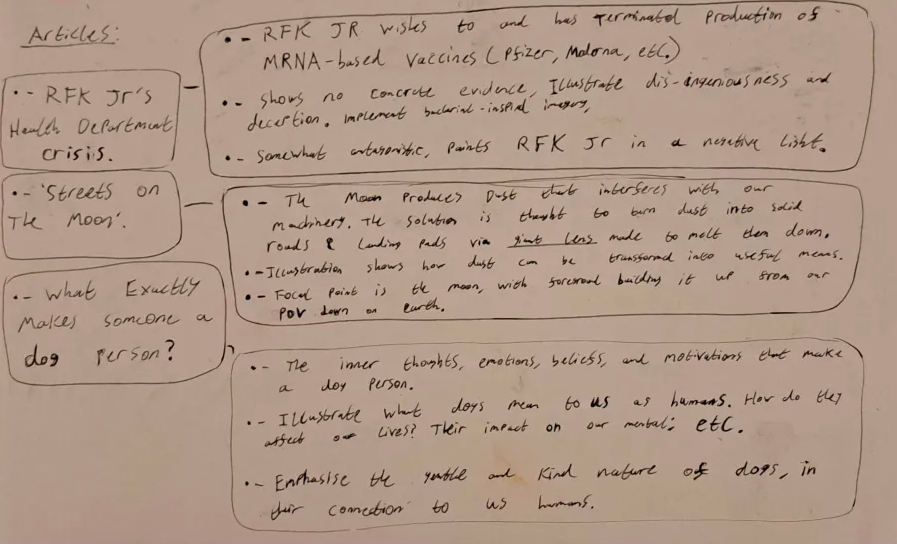 Articles:
•- RFK Jr's
Health Department
crisis.
•- RFK JR wishes to and has terminated production of
MRNA-based vaccines (Pfizer, Moderna, etc.)
•- Shows no concrete evidence, Illustrate dis-ingeniousness and
deception. Implement bacterial-inspired imagery,
•- Somewhat antagonistic, paints RFK Jr in a negative light.
•- 'Streets on
The Moon'.
•- The Moon Produces Dust that interferes with our
machinery. The solution is thought to turn dust into solid
roads & Landing pads via giant lens made to melt them down.
•- Illustration shows how dust can be transformed into useful means.
•- Focal Point is the moon, with foreground building it up from our
POV down on earth.
•- What Exactly
Makes someone a
dog person?
•- The inner thoughts, emotions, beliefs, and motivations that make
a dog person.
•- Illustrate what dogs mean to us as humans. How do they
affect our lives? Their impact on our mental, etc.
•- Emphasise the gentle and kind nature of dogs, in
their connection to us humans.